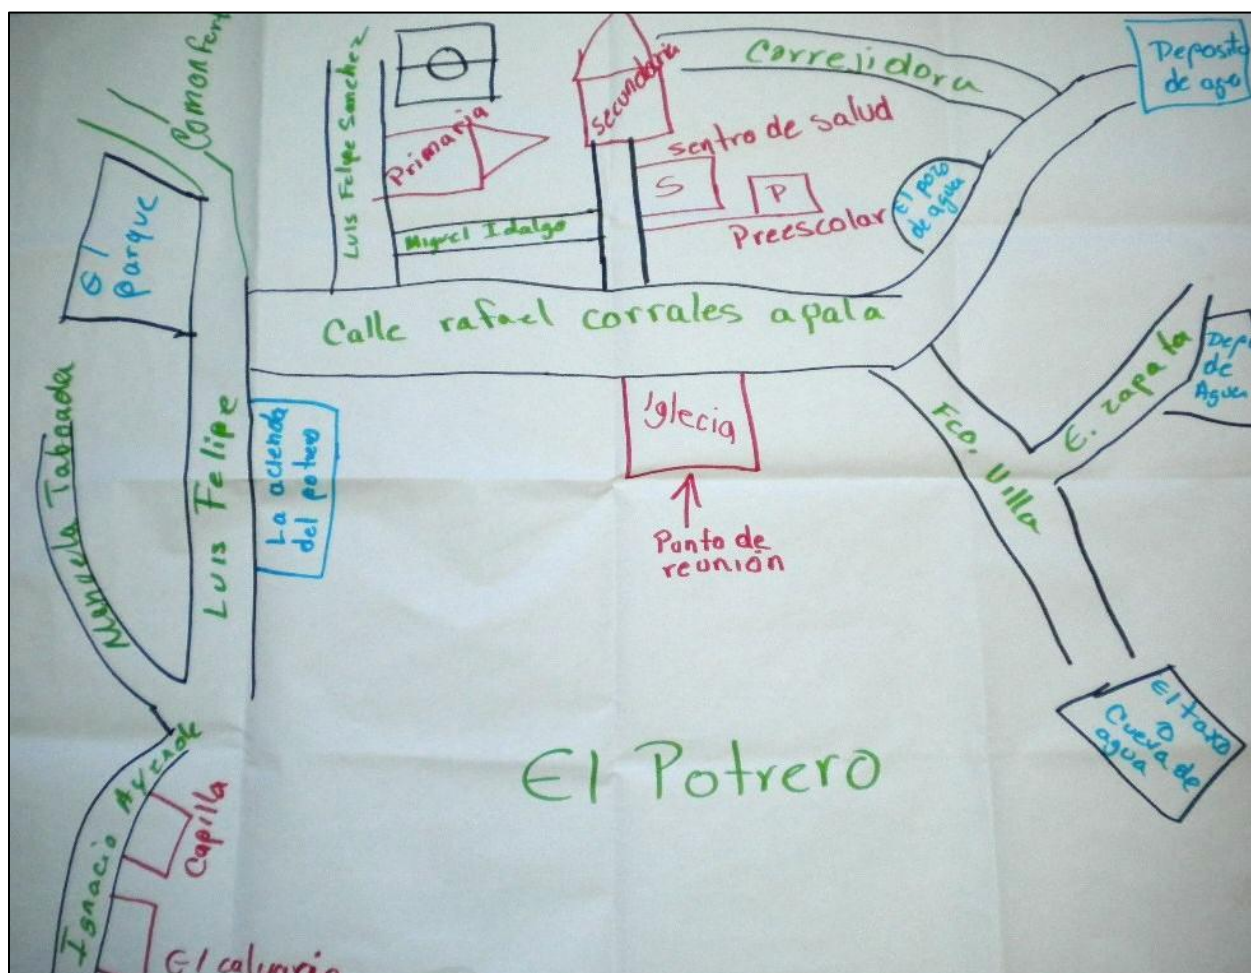 Comonfort
Luis Felipe Sanchez
Primaria
secundaria
Correjidora
Deposito
de agua
sentro de salud
S
P
Preescolar
El pozo
de agua
Miguel Idalgo
El
parque
Calle rafael corrales apala
Manuela Taboada
Luis Felipe
La acienda
del potrero
Iglecia
Punto de
reunión
Fco. Villa
E. zapata
Depo
de
Agua
El Potrero
Cueva de
agua
Ignacio Ayende
Capilla
El calvario